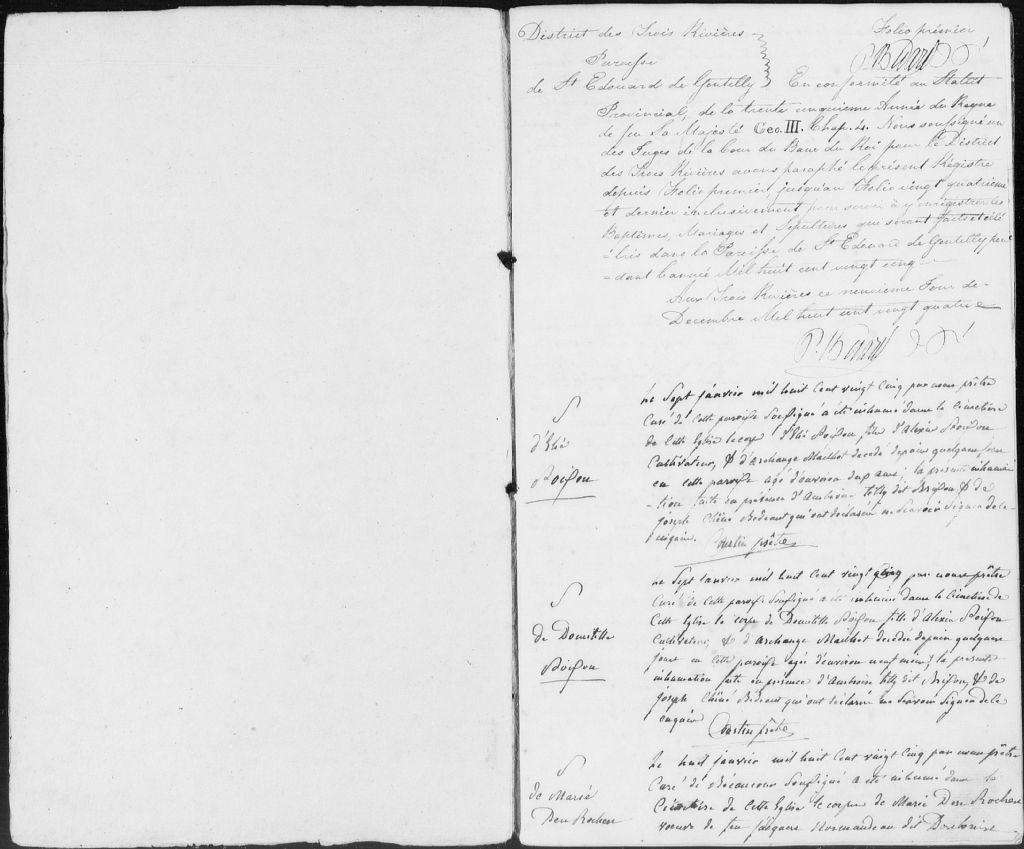 District des Trois Rivières
Folio premier
P. Bedard
Paroisse
de St Edouard de Gentilly
En conformité au Statut
Provincial, de la trente cinquieme Année du Regne
de feu Sa Majesté Geo. III. Chap. 4. Nous soussigné un
des Juges de la Cour du Banc du Roi pour le District
des Trois Rivières avons paraphé le présent Régistre
depuis Folio premier, jusqu'au Folio vingt quatrieme
et dernier inclusivement pour servir à y enrégistrer les
Baptêmes, Mariages et Sépultures qui seront faits et célé
=brés dans la Paroisse de St Edouard de Gentilly pen
=dant l'année Mil huit cent vingt cinq
Aux Trois Rivières ce neuvieme Jour de
Decembre Mil huit cent vingt quatre
P. Bedard
S
d'Elié
Poisson
Le Sept janvier mil huit Cent vingt Cinq par nous prêtre
Curé de Cette paroisse Soussigné a été inhumé dans le Cimetière
de Cette Eglise le corps d'Elié Poisson fils d'Alexis Poisson
Cultivateur, & d'archange Mailhot decédé depuis quelques jours
en cette paroisse agé d'environ ans; la presente inhuma
-tion faite en présence d'Ambroise dit Brisson & de
joseph Chêné Bedeaut qui ont déclarés ne Scavoir Signer de ce
enquis. Courtin prêtre
S
de Domitille
Poisson
Le Sept janvier mil huit Cent vingt Cinq par nous prêtre
Curé de Cette paroisse Soussigné a été inhumée dans le Cimetière de
Cette Eglise le corps de Domitille Poisson fille d'Alexis Poisson
Cultivateur, & d'archange Mailhot decédée depuis quelques
jours en Cette paroisse agée d'environ neuf mois; la présente
inhumation faite en présence d'Ambroise dit Brisson, & de
joseph Chêné Bedeaut qui ont déclarés ne Scavoir Signer de ce
enquis Courtin prêtre
S
de Marie
Des Rochers
Le huit janvier mil huit Cent vingt Cinq par nous prêtre
Curé de Bécancour Soussigné a été inhumé dans le
Cimetière de Cette Eglise le corps de Marie Des Rochers
veuve de feu jacques Normandeau dit